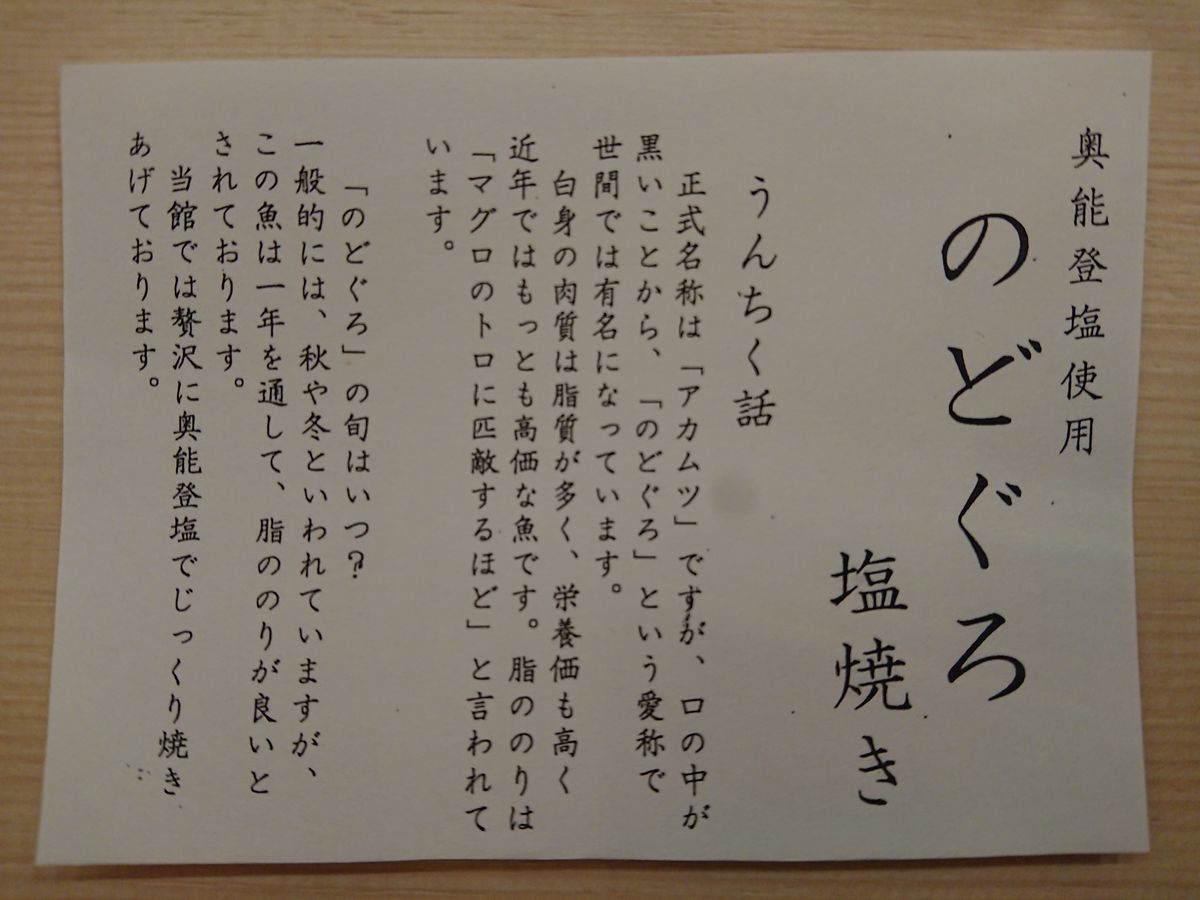 奥能登塩使用
のどぐろ
塩焼き
うんちく話
正式名称は「アカムツ」ですが、口の中が
黒いことから、「のどぐろ」という愛称で
世間では有名になっています。
白身の肉質は脂質が多く、栄養価も高く
近年ではもっとも高価な魚です。脂ののりは
「マグロのトロに匹敵するほど」と言われて
います。
「のどぐろ」の旬はいつ?
一般的には、秋や冬といわれていますが、
この魚は一年を通して、脂ののりが良いと
されております。
当館では贅沢に奥能登塩でじっくり焼き
あげております。